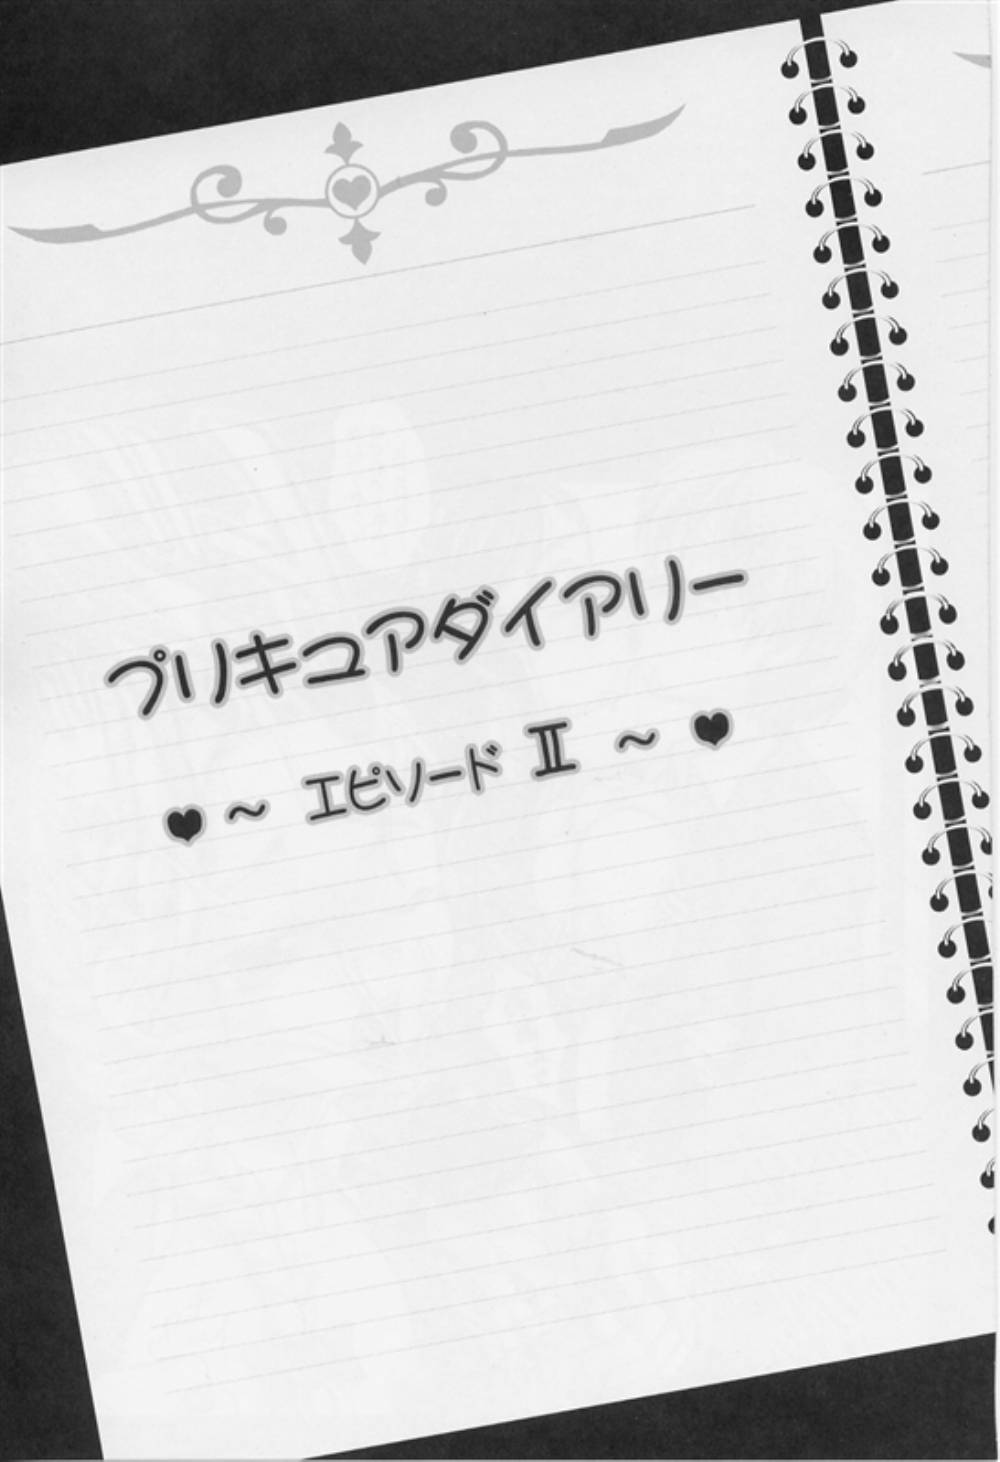 プリキュアダイアリー
♥～ エピソード Ⅱ ～♥